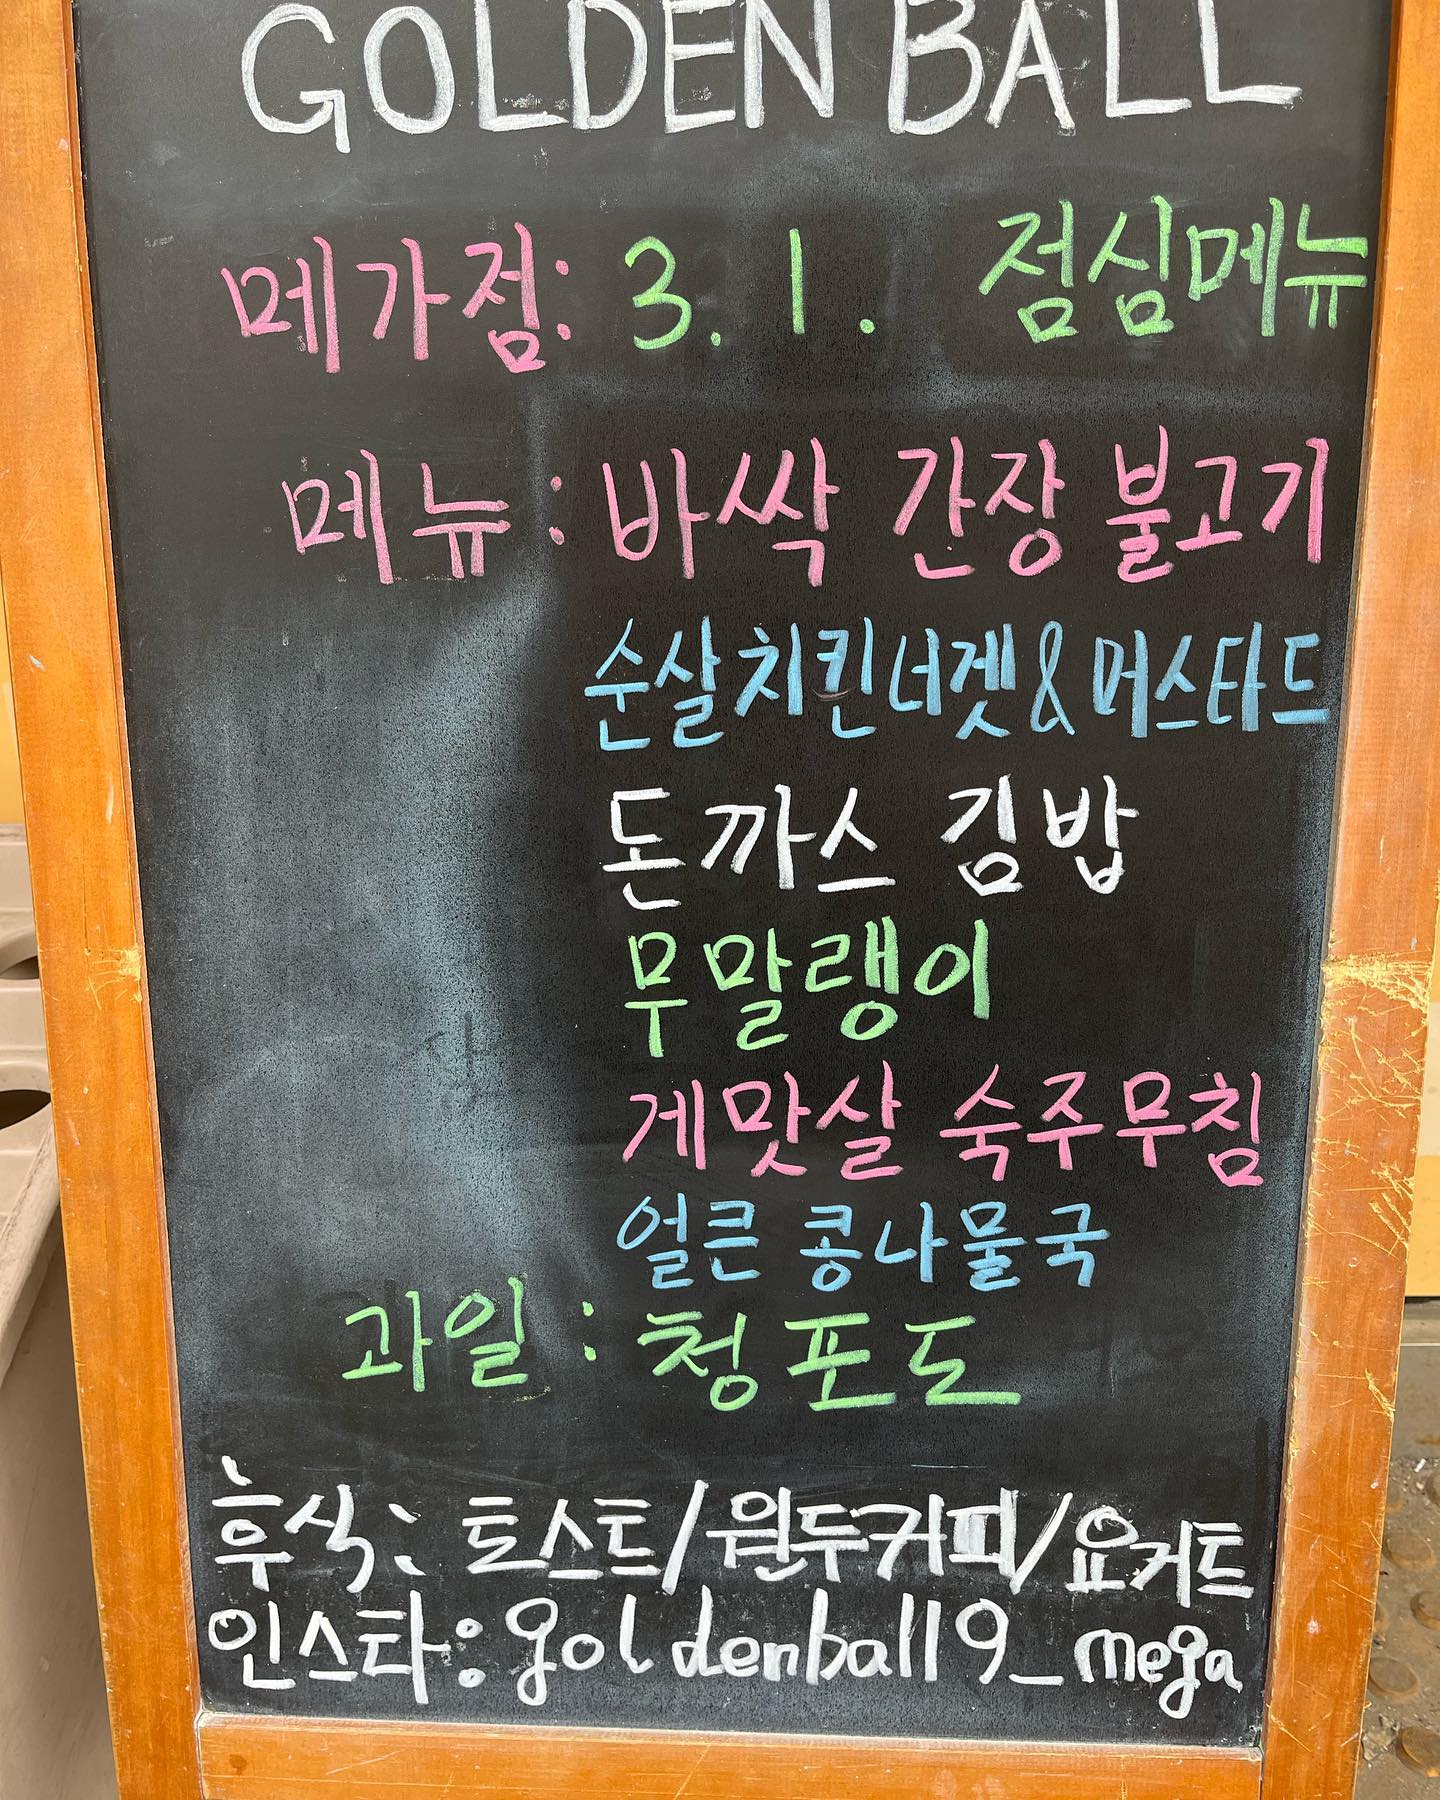 GOLDEN BALL
메가점: 3. 1. 점심메뉴
메뉴 : 바싹 간장 불고기
순살치킨너겟&머스타드
돈까스 김밥
무말랭이
게맛살 숙주무침
얼큰 콩나물국
과일 : 청포도
후식: 토스트/원두커피/요거트
인스타: goldenball9_mega